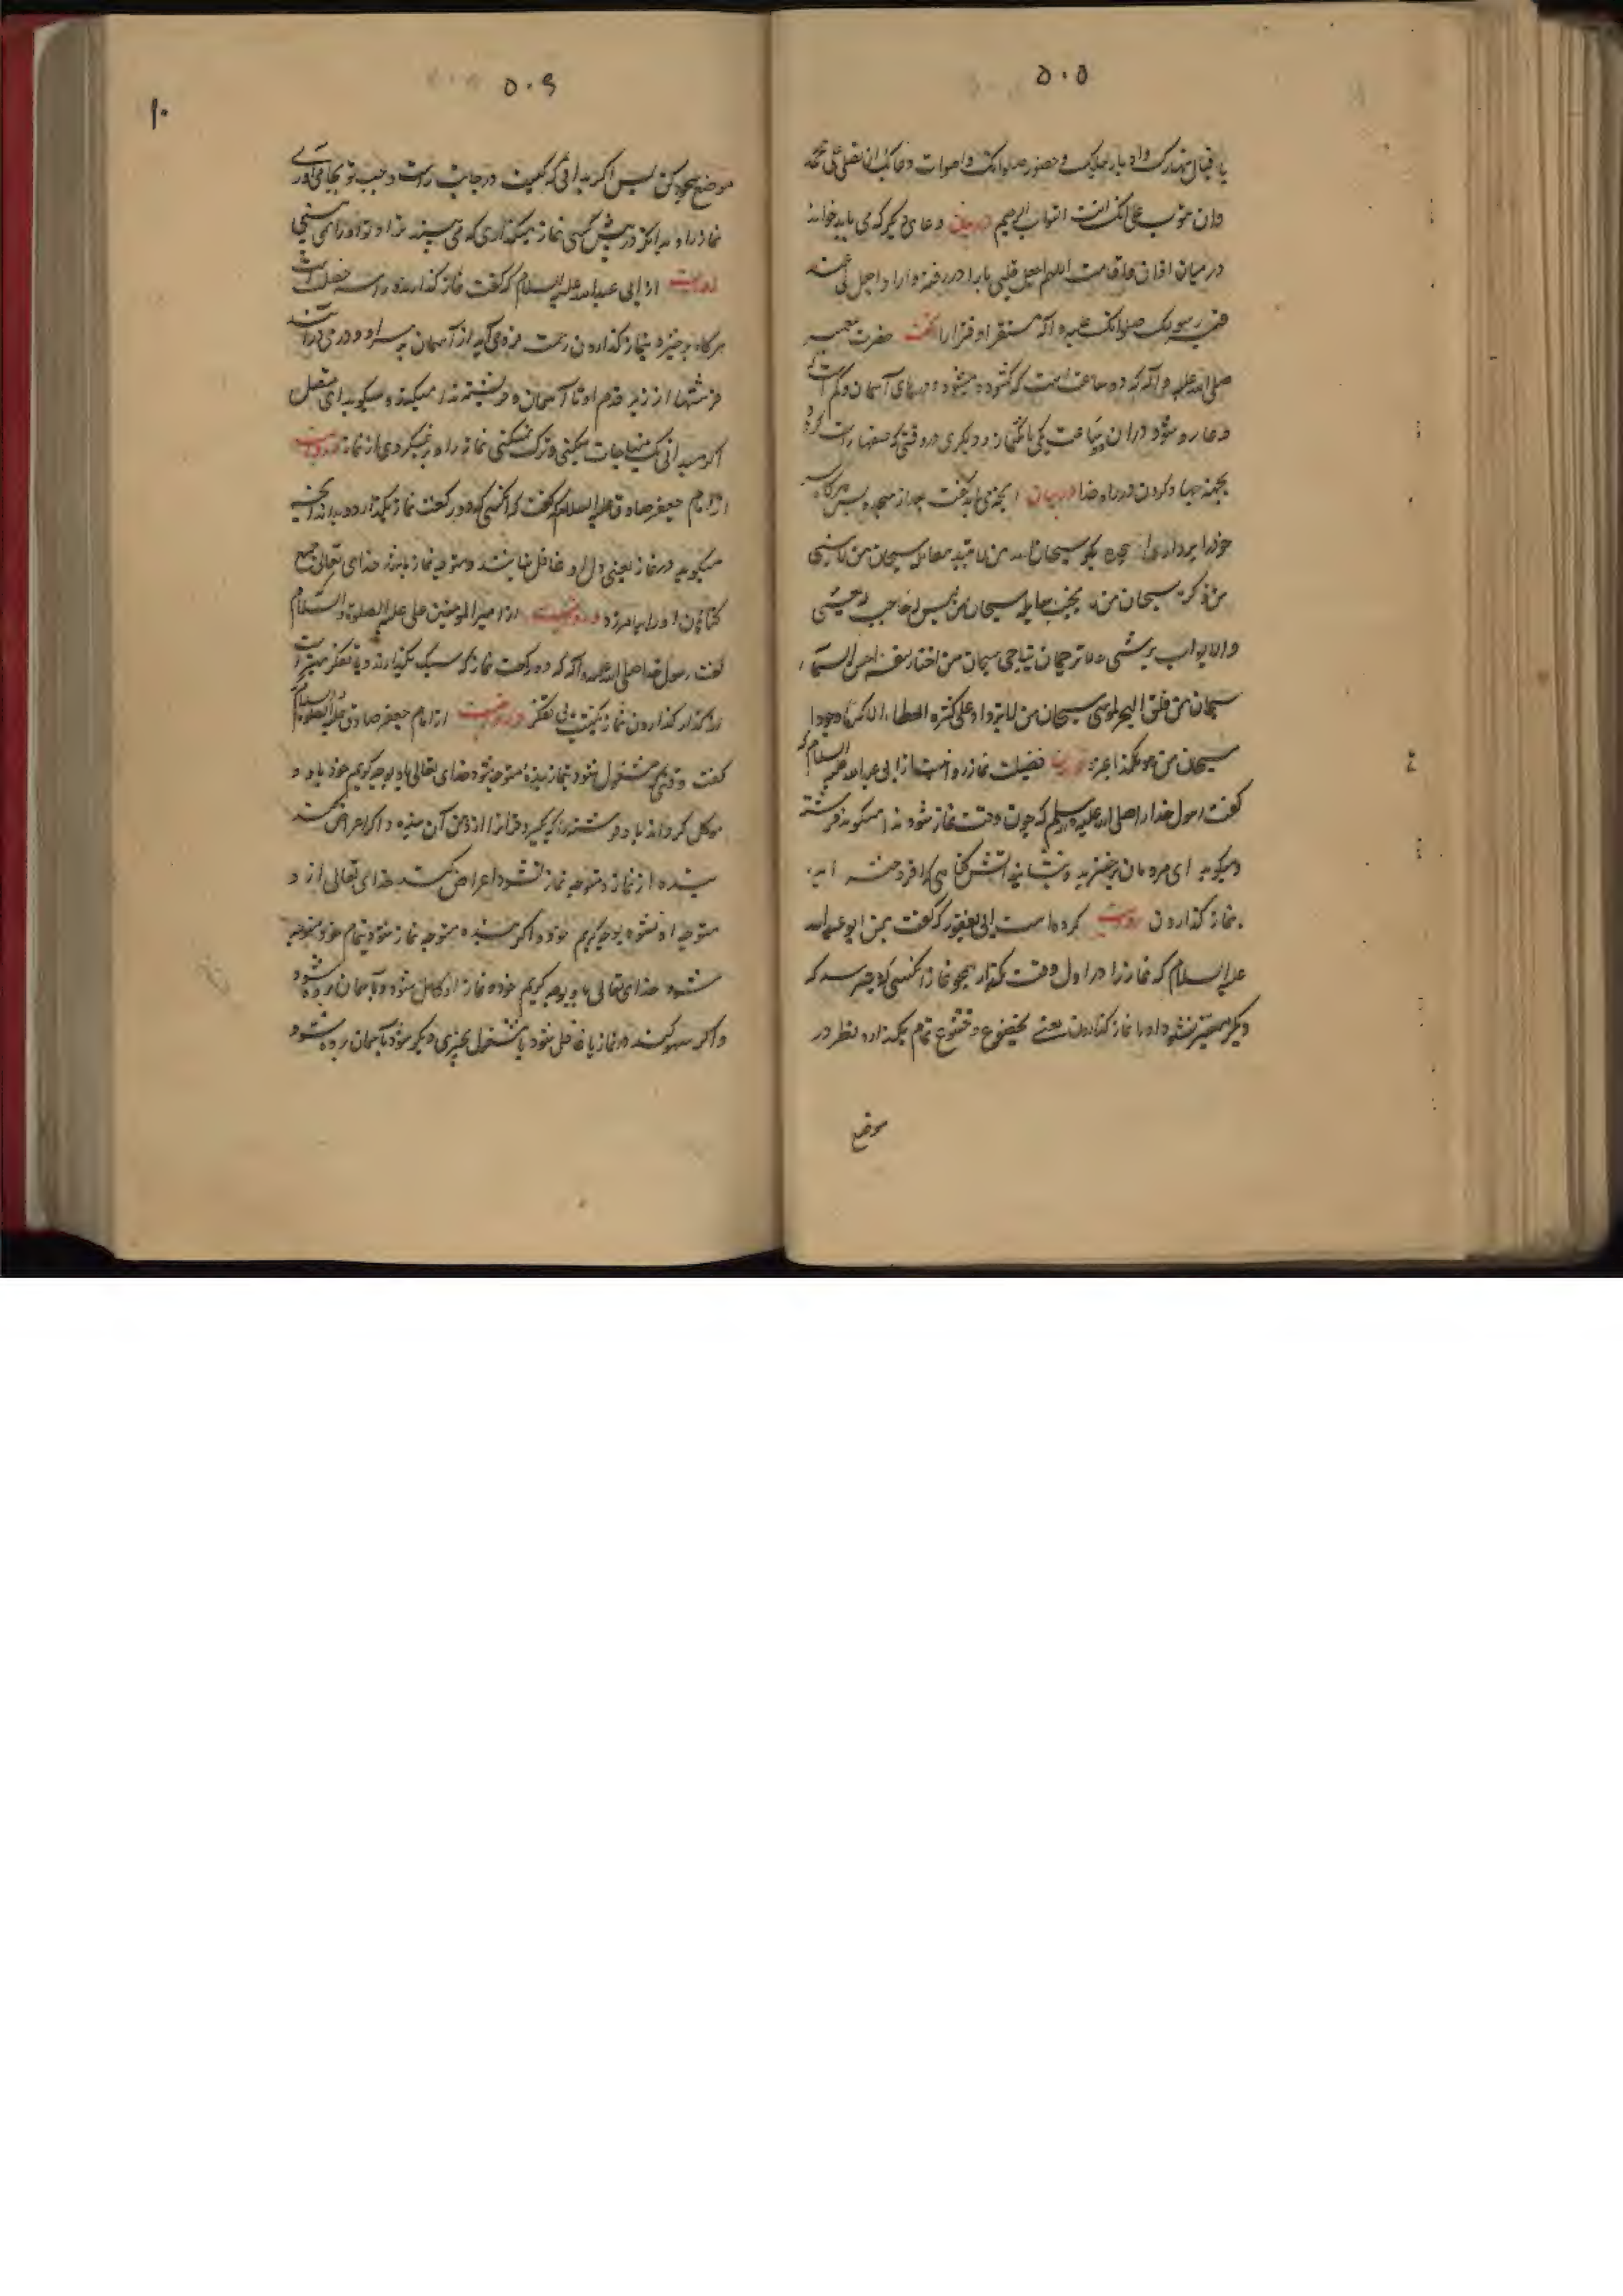 ۵۰۵
باقبال نهارک و ادبار لیلک و حضور صلواتک و اصوات دعاتک ان تصلی علی محمد
وان تتوب علی انک انت التواب الرحیم دعای دیگر که می باید خواند
در میان اذان و اقامت اللهم اجعل قلبی بارا و رزقی دارا و اجعل لی عند
قبر رسولک صلواتک علیه و آله مستقرا و قرارا گفت حضرت پیغمبر
صلی الله علیه و آله که دو ساعت است که گشوده میشود درهای آسمان و کم است که
دعا رد شود در ان ساعت یکی بانگ نماز و دیگری در وقتی که صفها راست کرده
بجهة جهاد کردن در راه خدا در بیان آنچه می باید گفت بعد از سجده پس هرگاه
خود را برداری از سجده بگو سبحان الله من لا تبید معالمه سبحان من لا ینسی
من ذکره سبحان من لا یخیب سایله سبحان من لیس له حاجب یغشی
ولا بواب یرشی ولا ترجمان یناجی سبحان من اختار لنفسه احسن الاسماء
سبحان من فلق البحر لموسی سبحان من لا یزداد علی کثرة العطاء الا کرما وجودا
سبحان من هو هکذا فضیلت نماز روایت از ابی عبد الله علیه السلام که
گفت رسول خدا صلی الله علیه وسلم که چون وقت نماز شود ندا میکند فرشته
و میگوید ای مردمان برخیزید و بنشانید آتش گناهی که افروخته اید
بنماز گذاردن روایت کرده است ابی یعفور که گفت بمن ابو عبدالله
علیه السلام که نماز را در اول وقت بگذار همچو نماز آنکسی که میترسد که
دیگر میسر نشود او را نماز گذاردن یعنی بخضوع و خشوع تمام بگذار و نظر در
موضع
۵۰۶
۱۰
موضع سجود کن پس اگر بدانی که کیست در جانب راست و چپ تو بجا می آوری
نماز را و بدانکه در پیش کسی نماز میگذاری که می بیند ترا و تو او را نمی بینی
روایت از ابی عبد الله علیه السلام که گفت نماز گذارنده را سه خصلت است
هرگاه برخیزد بنماز گذاردن رحمت فرو می آید از آسمان بر سر او و در می آیند
فرشتها از زیر قدم او تا آسمان و فرشته ندا میکند و میگوید ای مصلی
اگر میدانی که مناجات میکنی ترک نمیکنی نماز را و بر نمیگردی از نماز و روایت
از امام جعفر صادق علیه السلام که گفت که آنکسی که دو رکعت نماز بگذارد و بداند آنچه
میگوید در نماز یعنی دل او غافل نباشد و متوجه نماز باشد خدای تعالی جمیع
گناهان او را بیامرزد و روایت از امیر المومنین علی علیه الصلوة والسلام
گفت رسول خدا صلی الله علیه و آله که دو رکعت نماز که سبک بگذارند و با تفکر بهتر است
از گذاردن نماز بی تفکر و روایت از امام جعفر صادق علیه الصلوة والسلام
گفت وقتی که مشغول شود بنماز بنده متوجه شود خدای تعالی باو بوجه کریم خود باو و
موکل گرداند باو فرشته را که بگیرد قرآن را از دهن آن بنده و اگر اعراض کند
بنده از نماز و متوجه نماز نشود اعراض کند خدای تعالی از او و
متوجه او نشود بوجه کریم خود و اگر بنده متوجه نماز شود بتمام خود متوجه
شود خدای تعالی باو بوجه کریم خود و نماز او کامل شود و باسمان برده شود
و اگر سهو کند در نماز یا غافل شود یا مشغول بچیزی دیگر شود باسمان برده شود